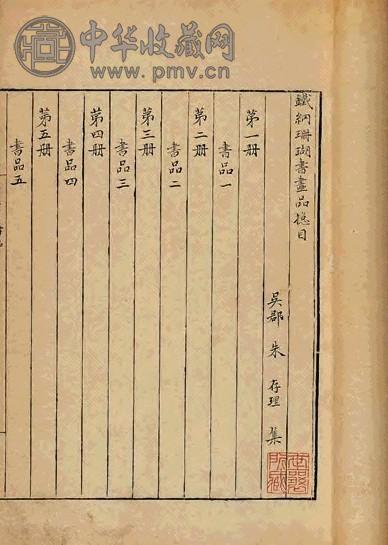 中华收藏网
www.pmv.cn
鐵網珊瑚書畫品總目
吳郡 朱 存理 集
第一册
書品一
第二册
書品二
第三册
書品三
第四册
書品四
第五册
書品五